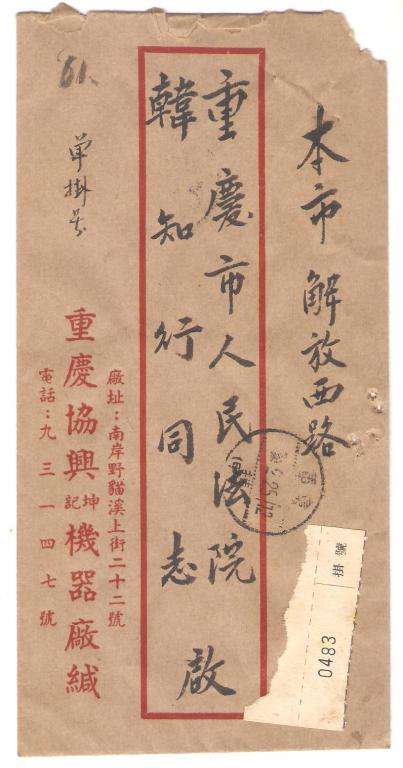 本市解放西路
重慶市人民法院
韓知行同志 啟
单掛号
廠址：南岸野貓溪上街二十二號
重慶協興坤記機器廠緘
電話：九三一四七號
掛號
0483